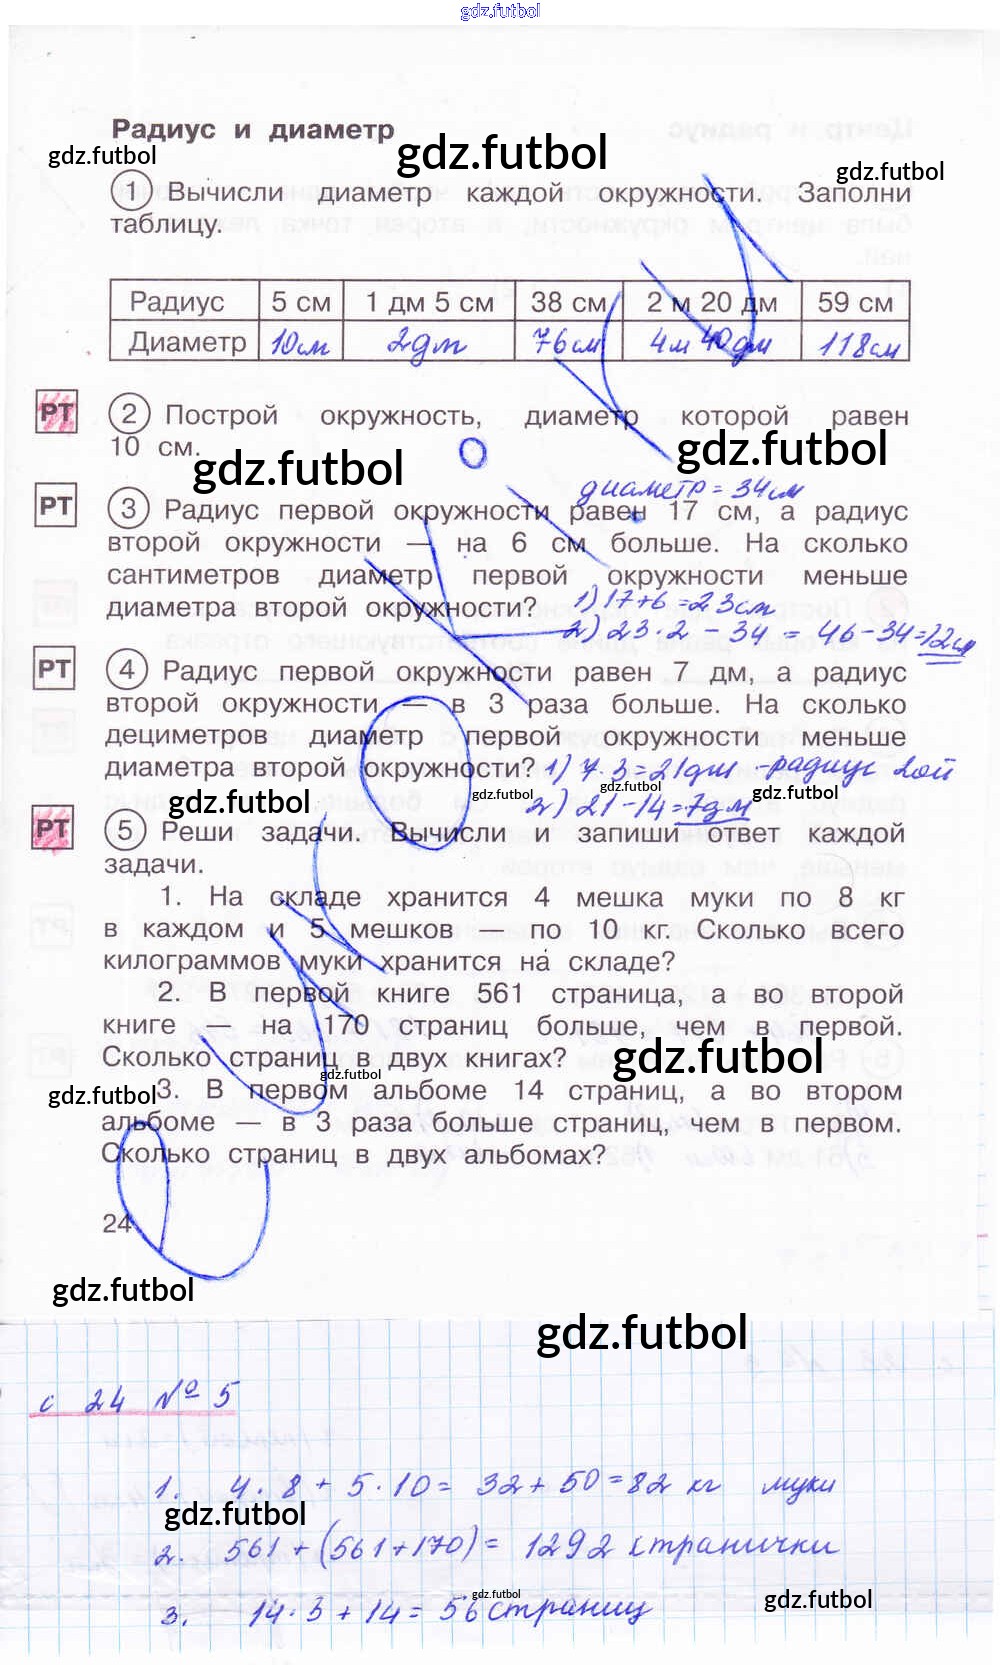 gdz.futbol
Радиус и диаметр
gdz.futbol
gdz.futbol
gdz.futbol
1 Вычисли диаметр каждой окружности. Заполни
таблицу.
Радиус 5 см 1 дм 5 см 38 см 2 м 20 дм 59 см
Диаметр 10см 2дм 76см 4м 40дм 118см
РТ 2 Построй окружность, диаметр которой равен
10 см.
gdz.futbol
gdz.futbol
диаметр = 34см
РТ 3 Радиус первой окружности равен 17 см, а радиус
второй окружности — на 6 см больше. На сколько
сантиметров диаметр первой окружности меньше
диаметра второй окружности? 1) 17+6=23см
2) 23·2 - 34 = 46-34=12см
РТ 4 Радиус первой окружности равен 7 дм, а радиус
второй окружности — в 3 раза больше. На сколько
дециметров диаметр первой окружности меньше
диаметра второй окружности? 1) 7·3=21дм -радиус 2ой
gdz.futbol
gdz.futbol
gdz.futbol
gdz.futbol
2) 21-14=7дм
РТ 5 Реши задачи. Вычисли и запиши ответ каждой
задачи.
1. На складе хранится 4 мешка муки по 8 кг
в каждом и 5 мешков — по 10 кг. Сколько всего
килограммов муки хранится на складе?
2. В первой книге 561 страница, а во второй
книге — на 170 страниц больше, чем в первой.
Сколько страниц в двух книгах?
gdz.futbol
gdz.futbol
gdz.futbol
3. В первом альбоме 14 страниц, а во втором
альбоме — в 3 раза больше страниц, чем в первом.
Сколько страниц в двух альбомах?
24
gdz.futbol
gdz.futbol
с 24 № 5
1. 4·8+5·10= 32+50=82 кг муки
gdz.futbol
2. 561+(561+170)= 1292 странички
gdz.futbol
gdz.futbol
3. 14·3+14= 56 страниц